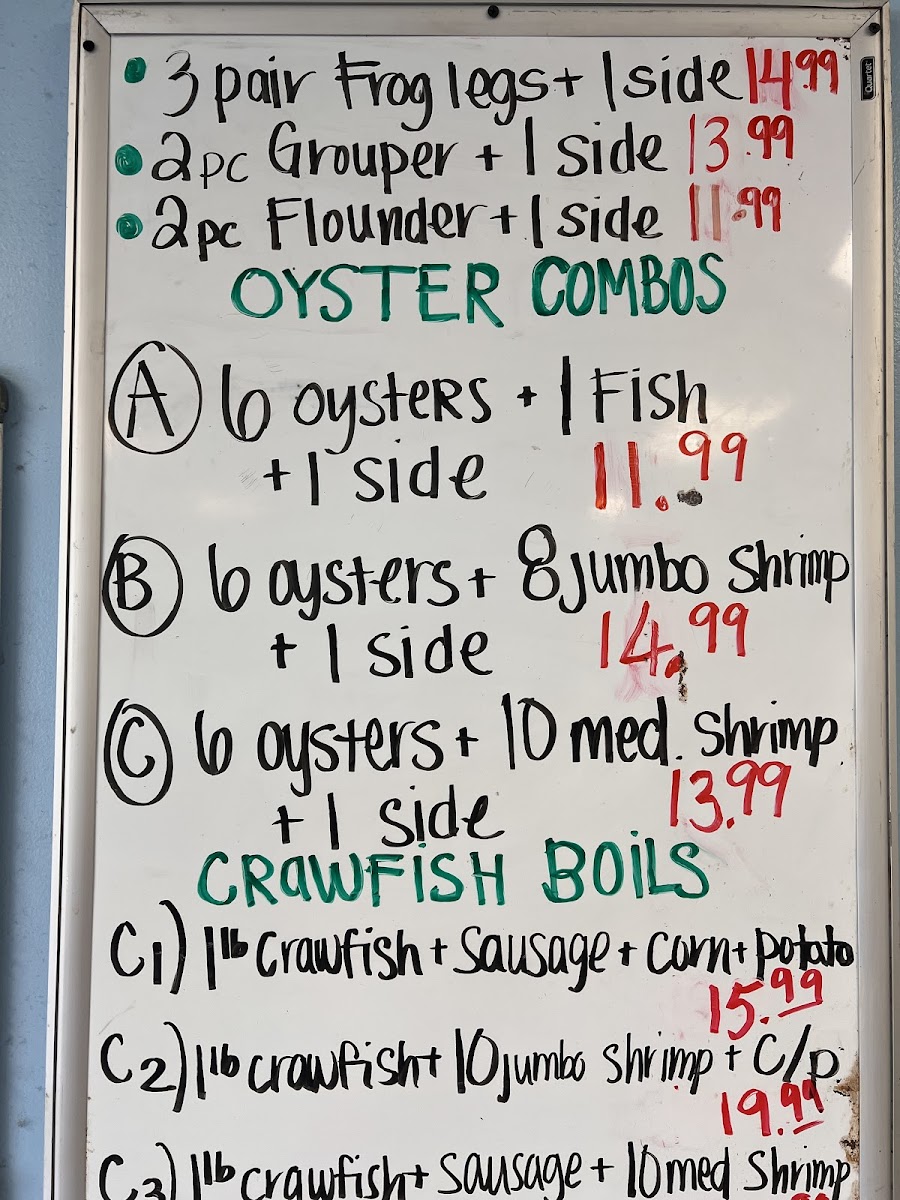 3 pair Frog legs + 1 side 14.99
Quartet
2pc Grouper + 1 side 13.99
2pc Flounder + 1 side 11.99
OYSTER COMBOS
A 6 oysters + 1 Fish
+ 1 side 11.99
B 6 oysters + 8 jumbo shrimp
+ 1 side 14.99
C 6 oysters + 10 med. shrimp
+ 1 side 13.99
CRAWFISH BOILS
C1) 1lb Crawfish + Sausage + corn + potato
15.99
C2) 1lb crawfish + 10 jumbo shrimp + C/p
19.99
C3) 1lb crawfish + sausage + 10 med shrimp